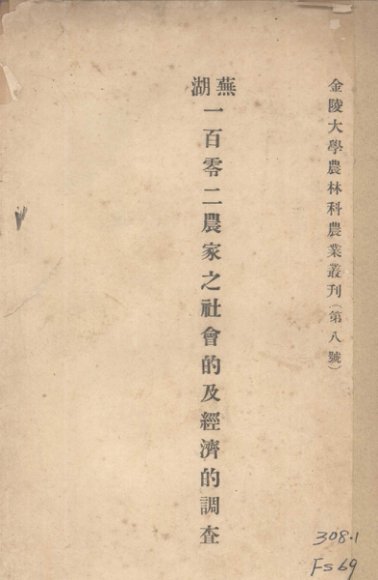 金陵大學農林科農業叢刊(第八號)
蕪湖一百零二農家之社會的及經濟的調查
308.1
Fs 69